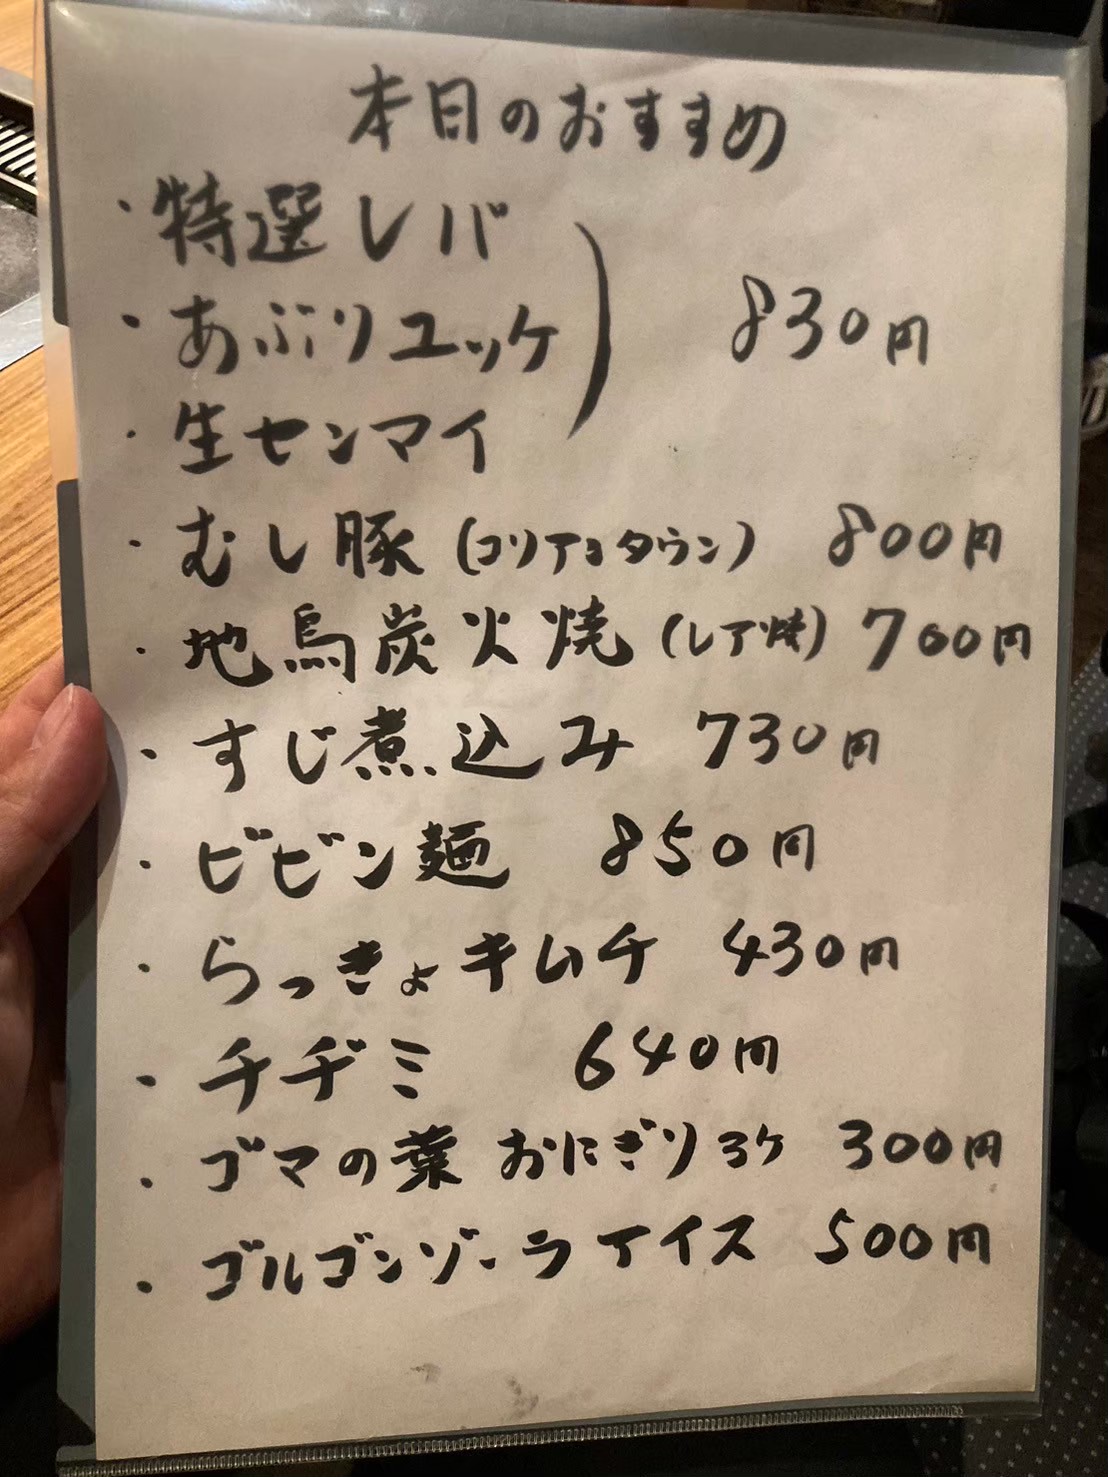 本日のおすすめ
・特選レバ
・あぶりユッケ 830円
・生センマイ
・むし豚(コリアンタウン) 800円
・地鳥炭火焼(レア焼) 700円
・すじ煮込み 730円
・ビビン麺 850円
・らっきょキムチ 430円
・チヂミ 640円
・ゴマの葉おにぎり3ケ 300円
・ゴルゴンゾーラアイス 500円